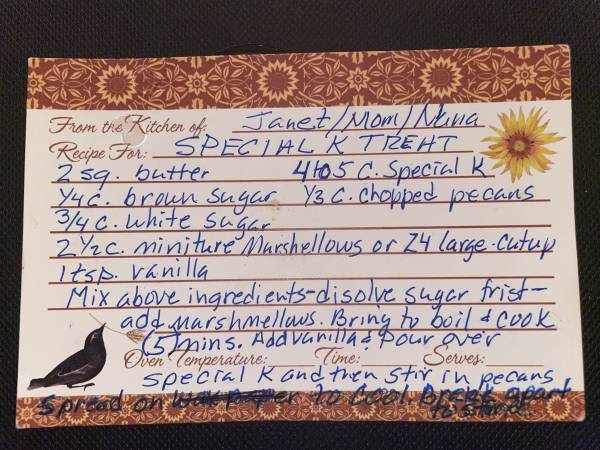 From the Kitchen of: Janet/Mom/Nana
Recipe For: SPECIAL K TREAT
2 sq. butter 4 to 5 c. Special K
1/4 c. brown sugar 1/3 c. chopped pecans
3/4 c. white sugar
2 1/2 c. miniture Marshellows or 24 large-cut up
1 tsp. vanilla
Mix above ingredients-disolve sugar frist-
add marshmellows. Bring to boil & cook
(5) mins. Add vanilla & pour over
Oven Temperature: Time: Serves:
Special K and then stir in pecans
Spread on to cool. Brake apart
to store.